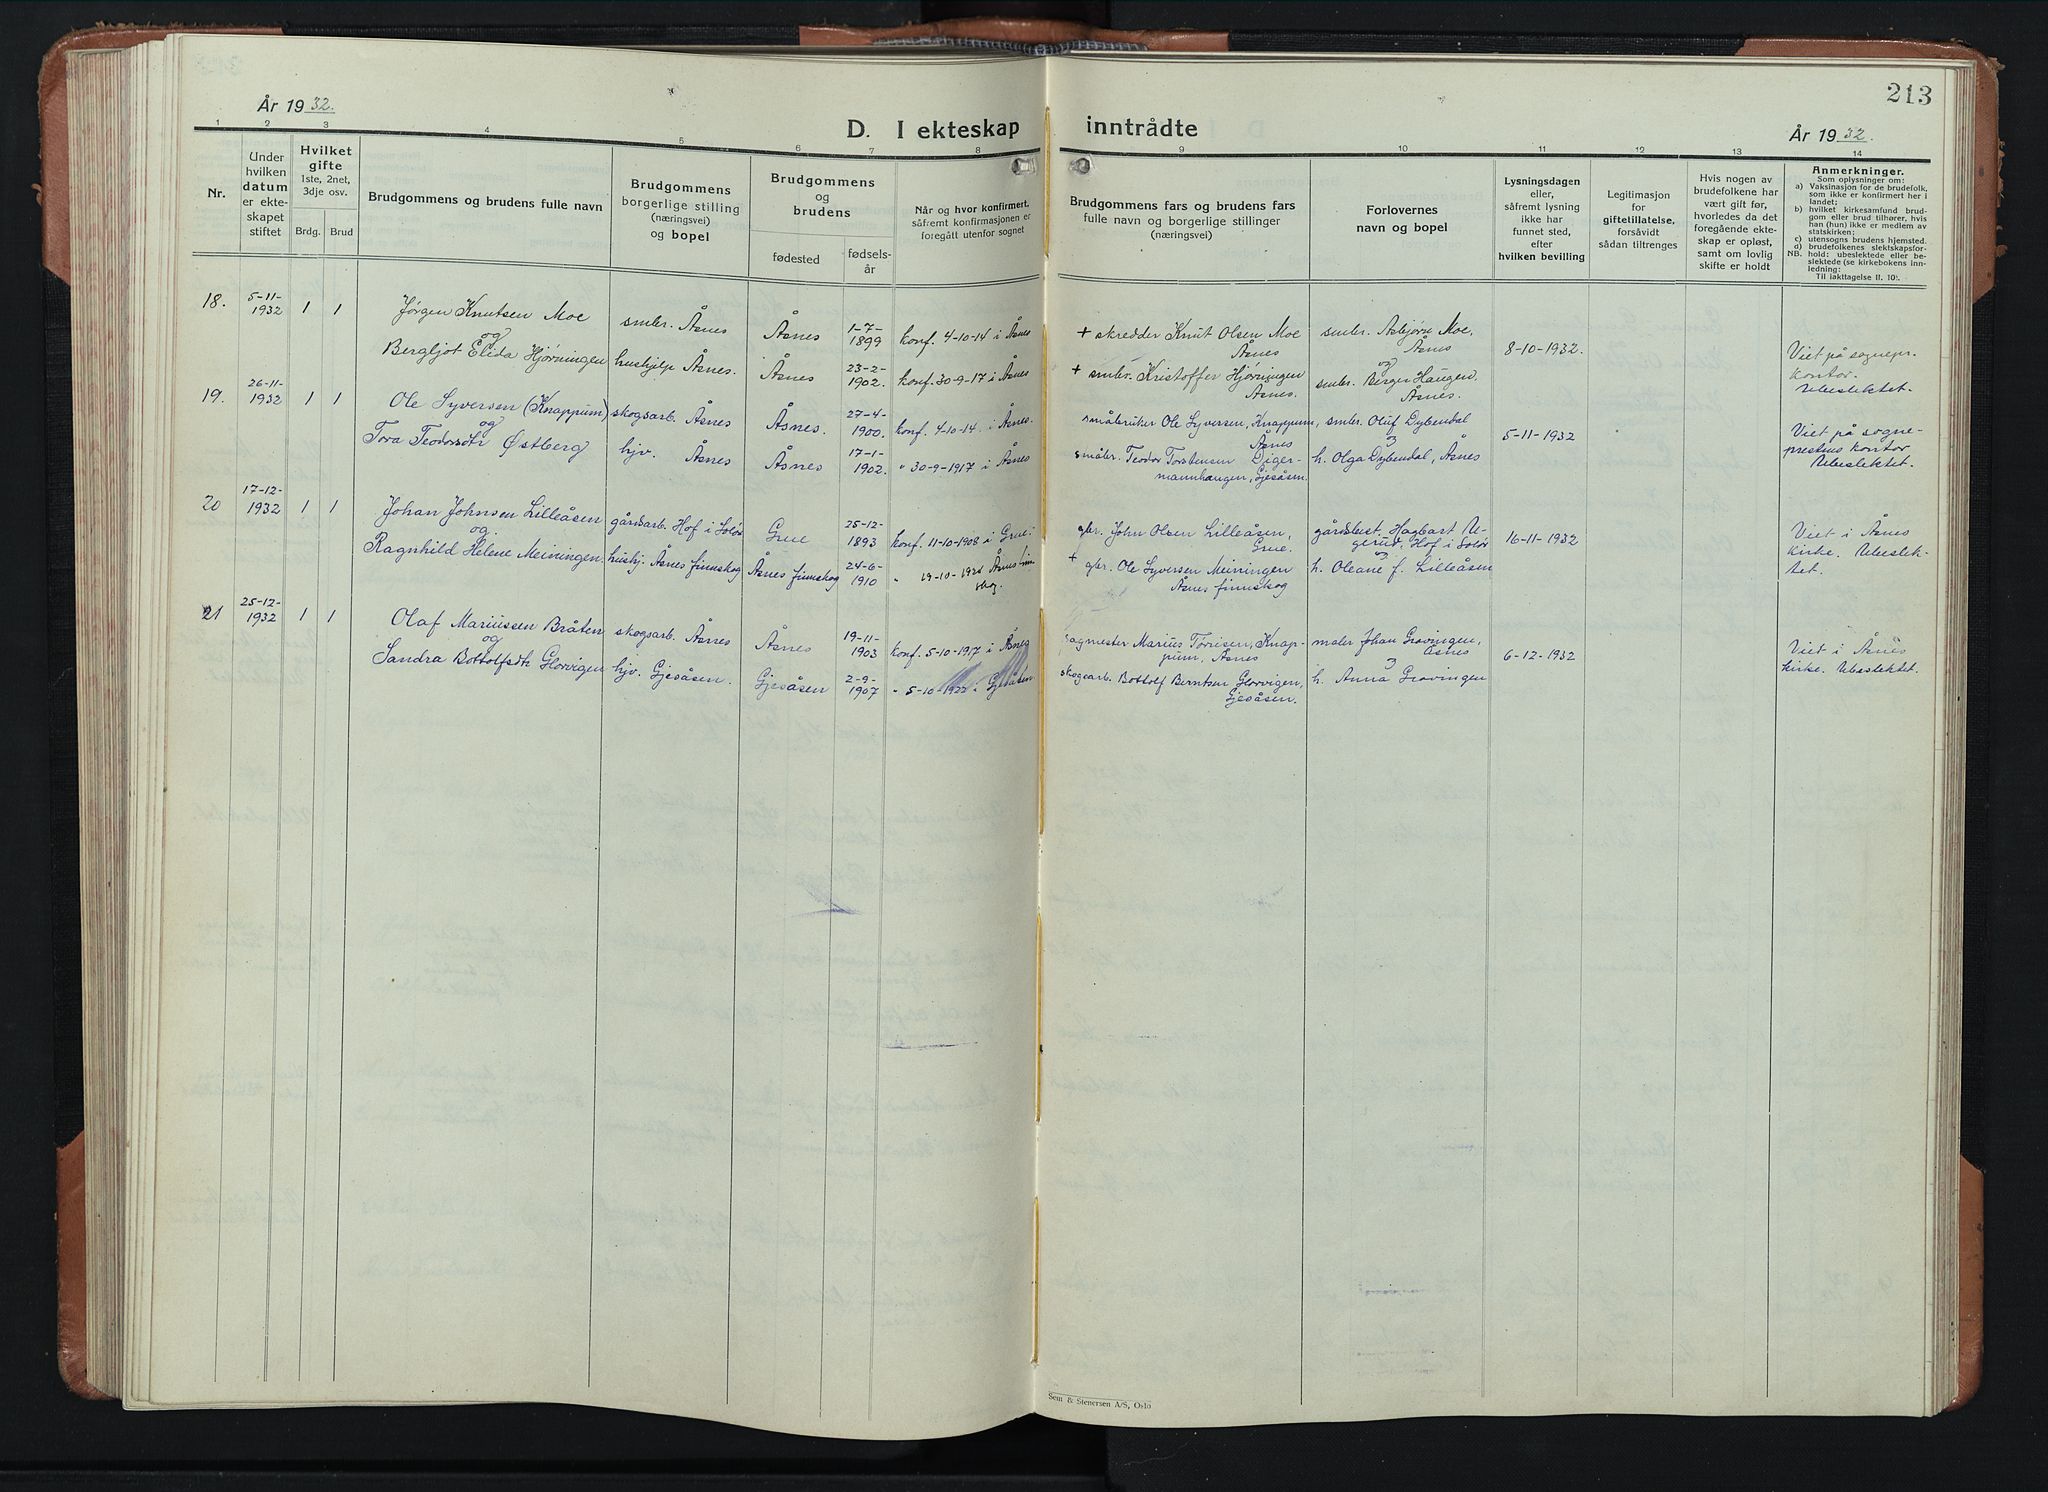 213
År 1932.
D. I ekteskap inntrådte
År 1932.
1 2 3 4 5 6 7 8 9 10 11 12 13 14
Nr.
Under
hvilken
datum
er ekte-
skapet
stiftet
Hvilket
gifte
1ste, 2net,
3dje osv.
Brdg. Brud
Brudgommens og brudens fulle navn
Brudgommens
borgerlige stilling
(næringsvei)
og bopel
Brudgommens
og
brudens
fødested
fødsels-
år
Når og hvor konfirmert,
såfremt konfirmasjonen er
foregått utenfor sognet
Brudgommens fars og brudens fars
fulle navn og borgerlige stillinger
(næringsvei)
Forlovernes
navn og bopel
Lysningsdagen
eller,
såfremt lysning
ikke har
funnet sted,
efter
hvilken bevilling
Legitimasjon
for
giftetillatelse,
forsåvidt
sådan tiltrenges
Hvis nogen av
brudefolkene har
vært gift før,
hvorledes da det
foregående ekte-
skap er opløst,
samt om lovlig
skifte er holdt
Anmerkninger.
Som oplysninger om:
a) Vaksinasjon for de brudefolk,
som ikke er konfirmert her i
landet;
b) hvilket kirkesamfund brud-
gom eller brud tilhører, hvis
han (hun) ikke er medlem av
statskirken;
c) utensogns brudens hjemsted.
d) brudefolkenes slektskapsfor-
NB. hold: ubeslektede eller be-
slektede (se kirkebokens inn-
ledning:
Til iakttagelse II. 10).
18.
5-11-
1932
1 1
Jørgen Knutsen Moe
og
Bergljot Elida Hjørningen
smbr. Åsnes
hushjelp Åsnes.
Åsnes
Åsnes
1-7-
1899
23-2-
1902.
konf. 4-10-14 i Åsnes
konf. 30-9-17 i Åsnes
+ skredder Knut Olsen Moe
Åsnes
+ smbr. Kristoffer Hjørningen
Åsnes.
smbr. Asbjørn Moe,
Åsnes
og
smbr. Berger Haugen,
Åsnes.
8-10-1932.
Viet på sognepr.
kontor.
Ubeslektet.
19.
26-11-
1932
1 1
Ole Syversen (Knappum)
og
Tora Teodorsdtr Østberg
skogsarb. Åsnes
hjv. Åsnes
Åsnes.
Åsnes
27-4-
1900.
17-1-
1902.
konf. 4-10-14. i Åsnes.
" 30-9-1917 i Åsnes
småbruker Ole Syversen, Knappum,
Åsnes
småbr. Teodor Torstensen Diger-
mannhaugen, Gjesåsen.
smbr. Oluf Dybendal
og
h. Olga Dybendal, Åsnes
5-11-1932
Viet på sogne-
prestens kontor
Ubeslektet.
20
17-12-
1932
1 1
Johan Johnsen Lilleåsen
og
Ragnhild Helene Meiningen
gårdsarb. Hof i Solør
hushj. Åsnes finnskog
Grue
Åsnes finnskog
25-12-
1893
24-6-
1910
konf. 11-10-1908 i Grue.
" 19-10-1924 Åsnes finn-
skog
gbr. John Olsen Lilleåsen,
Grue.
+ gbr. Ole Syversen Meiningen
Åsnes finnskog
gårdbest. Hagbart U-
gerud, Hof i Solør
og
h. Oleane f. Lilleåsen
16-11-1932
Viet i Åsnes
kirke. Ubeslek-
tet.
21.
25-12-
1932
1 1
Olaf Mariussen Bråten
og
Sandra Bottolfsdtr Glorvigen
skogsarb. Åsnes
hjv. Gjesåsen.
Åsnes
Gjesåsen
19-11-
1903
2-9-
1907
konf. 5-10-1917 i Åsnes
" 5-10-1922 " Gjesåsen
sagmester Marius Tørrisen, Knap-
pum, Åsnes
skogsarb. Bottolf Berntsen Glorvigen,
Gjesåsen.
maler Johan Grovingen,
Åsnes
og
h. Anna Grovingen
6-12-1932
Viet i Åsnes
kirke. Ubeslektet.
Sem & Stenersen A/S, Oslo